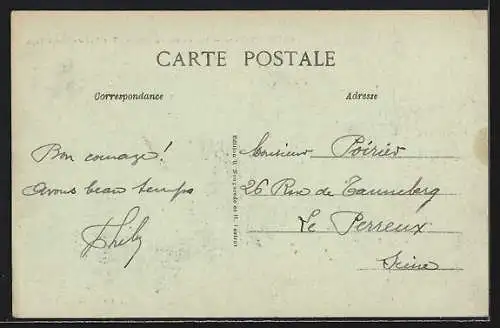 CARTE POSTALE
Correspondance
Adresse
Bon courage!
Avons beau temps
Monsieur Poirier
26 Rue de Tanneberg
Le Perreux
Seine